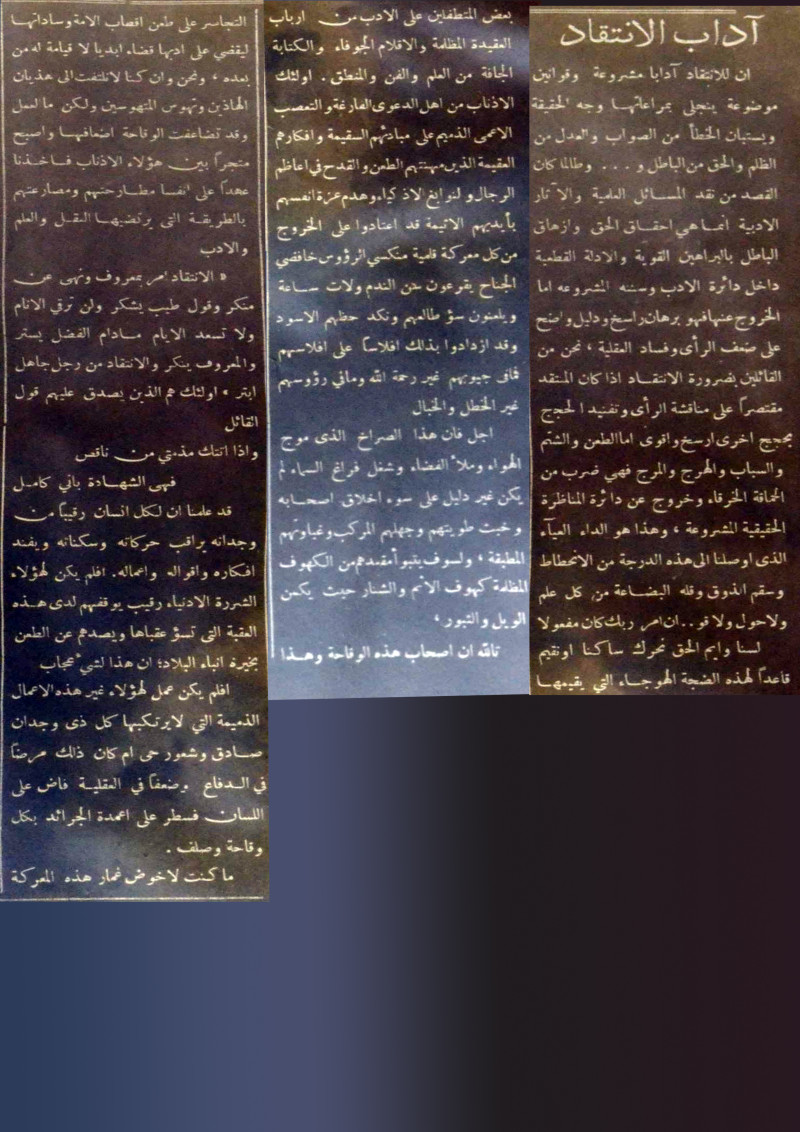 آداب الانتقاد
ان للانتقاد آدابا مشروعة وقوانين
موضوعة ينجلي بمراعاتها وجه الحقيقة
ويستبان الخطأ من الصواب والعدل من
الظلم والحق من الباطل و . . . وطالما كان
القصد من نقد المسائل العلمية والآثار
الادبية انما هي احقاق الحق وازهاق
الباطل بالبراهين القوية والادلة القطعية
داخل دائرة الادب وسننه المشروعه اما
الخروج عنها فهو برهان راسخ ودليل واضح
على ضعف الرأى وفساد العقلية ، نحن من
القائلين بضرورة الانتقاد اذا كان المنتقد
مقتصراً على مناقشة الرأى وتفنيد الحجج
بحجج اخرى ارسخ واقوى اما الطعن والشتم
والسباب والهرج والمرج فهي ضرب من
الحماقة الخرقاء وخروج عن دائرة المناظرة
الحقيقية المشروعة ، وهذا هو الداء العياء
الذى اوصلنا الى هذه الدرجة من الانحطاط
وسقم الذوق وقله البضاعة من كل علم
ولا حول ولا قو . . ان امر ربك كان مفعولا
لسنا وايم الحق نحرك ساكنا او نقيم
قاعداً لهذه الضجة الهوجاء التي يقيمها
بعض المتطفلين على الادب من ارباب
العقيدة المظلمة والاقلام الجوفاء والكتابة
الجافة من العلم والفن والمنطق . اولئك
الاذناب من اهل الدعوى الفارغة والتعصب
الاعمى الذميم على مبادئهم السقيمة وافكارهم
العقيمة الذين مهنتهم الطعن والقدح في اعاظم
الرجال ونوابغ الاذكياء وهدم عزة انفسهم
بأيديهم الاثيمة قد اعتادوا على الخروج
من كل معركة قلمية منكسي الرؤوس خافضي
الجناح يقرعون سن الندم ولات ساعة
ويلعنون سؤ طالعهم ونكد حظهم الاسود
وقد ازدادوا بذلك افلاساً على افلاسهم
فمافى جيوبهم غير رحمة الله ومافي رؤوسهم
غير الخطل والخبال
اجل فان هذا الصراخ الذى موج
الهواء وملأ الفضاء وشغل فراغ السماء لم
يكن غير دليل على سوء اخلاق اصحابه
وخبث طويتهم وجهلهم المركب وغباوتهم
المطبقة ، ولسوف يتبوأ مقعدهم من الكهوف
المظلمة كهوف الاثم والشنار حيث يكمن
الويل والثبور ،
تالله ان اصحاب هذه الوقاحة وهذا
التجاسر على طعن اقصاب الامة وساداتها
ليقضي على ادبها قضاء ابديا لا قيامة له من
بعده ، ونحن وان كنا لا نلتفت الى هذيان
الهاذين وتهوس المتهوسين ولكن ما لعمل
وقد تضاعفت الوقاحة اضعافها واصبح
متجراً بين هؤلاء الاذناب فاخذنا
عهداً على انفسنا مطارحتهم ومصارعتهم
بالطريقة التى يرتضيها العقل والعلم
والادب
« الانتقاد امر بمعروف ونهى عن
منكر وقول طيب يشكر ولن ترقي الانام
ولا تسعد الايام مادام الفضل يستر
والمعروف ينكر والانتقاد من رجل جاهل
ابتر » اولئك هم الذين يصدق عليهم قول
القائل
واذا اتتك مذمتي من ناقص
فهى الشهادة باني كامل
قد علمنا ان لكل انسان رقيباً من
وجدانه يراقب حركاته وسكناته ويفند
افكاره واقواله واعماله. افلم يكن لهؤلاء
الشررة الادنياء رقيب يوقفهم لدى هذه
العقبة التى تسؤ عقباها ويصدهم عن الطعن
بخيرة ابناء البلاد؛ ان هذا لشيء عجاب
افلم يكن عمل لهؤلاء غير هذه الاعمال
الذميمة التي لا يرتكبها كل ذى وجدان
صادق وشعور حى ام كان ذلك مرضاً
في الدماغ وضعفاً في العقلية فاض على
اللسان فسطر على اعمدة الجرائد بكل
وقاحة وصلف .
ما كنت لاخوض غمار هذه المعركة